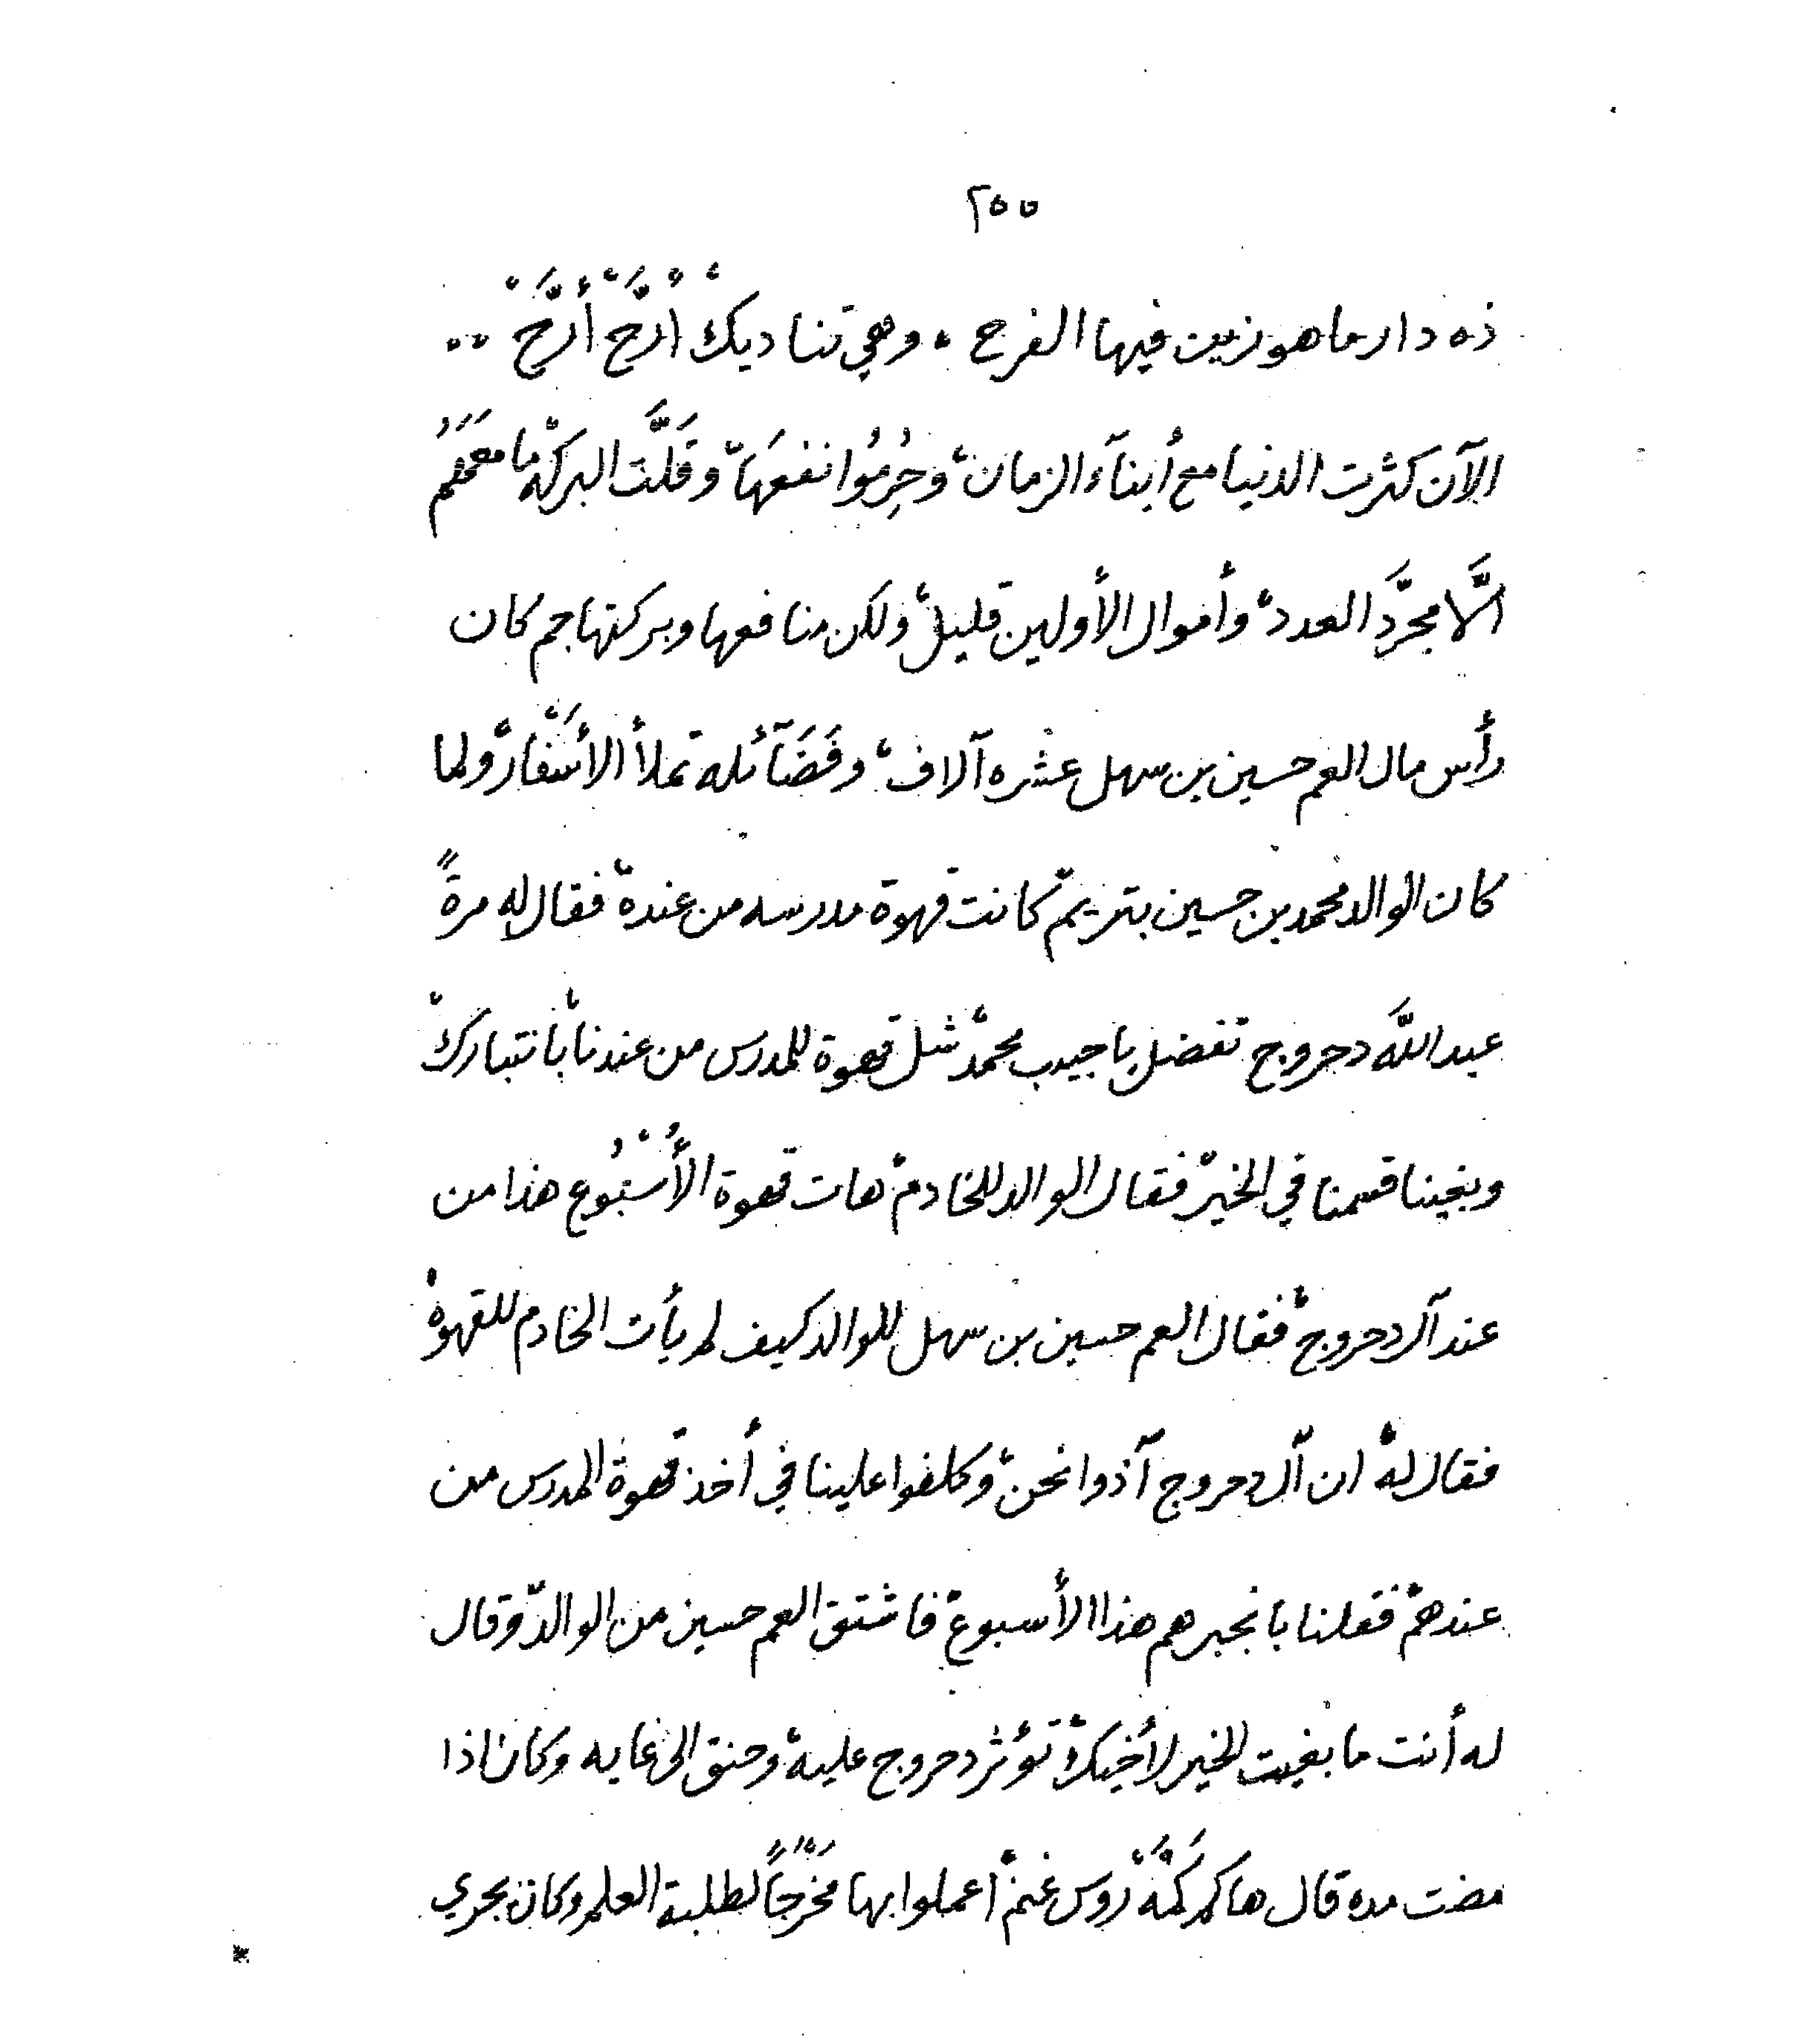 ٢٥٥
ذه دار ما هو زين فيها الفرح ، وهي تناديك أَرَّحْ أَرَّحْ ..
الآن كثرت الدنيا مع أبنآء الزمان، وحُرِمُوا نفعَها، وقَلَّت البركة، ما معَهَم
الَّا مجرَّد العدد، وأموال الأولين قليل، ولكن منافعها وبركتها جم كان
رأس مال العم حسين بن سهل عشره آلاف، وفَضَآئله تملأ الأسْفار، ولما
كان الوالد محمد بن حسين بتريم، كانت قهوة مدرسه من عنده، فقال له مرةً
عبد اللَّه دحروج تفضل يا حبيب محمد، شل قهوة للمدرس من عندنا، بانتبارك
وبغينا قسمنا في الخير، فقال الوالد للخادم، هات قهوة الأُسْبُوع هذا من
عند آل دحروج، فقال العم حسين بن سهل للوالد كيف لم يأت الخادم للقهوة،
فقال له، ان آل دحروج آذوا نحن، وكلفوا علينا في أخذ قهوة المدرس من
عندهم، فقلنا بانجبرهم هذا الأسبوع، فاشتق العم حسين من الوالد، وقال
له أنت ما بغيت الخير لأخيك، تؤثر دحروج عليه، وحنق الى غايه وكان اذا
مضت مده قال هاكم كَمَّهْ روس غنم، أعملوا بها مَخْرَجاً لطلبة العلم وكان يجري